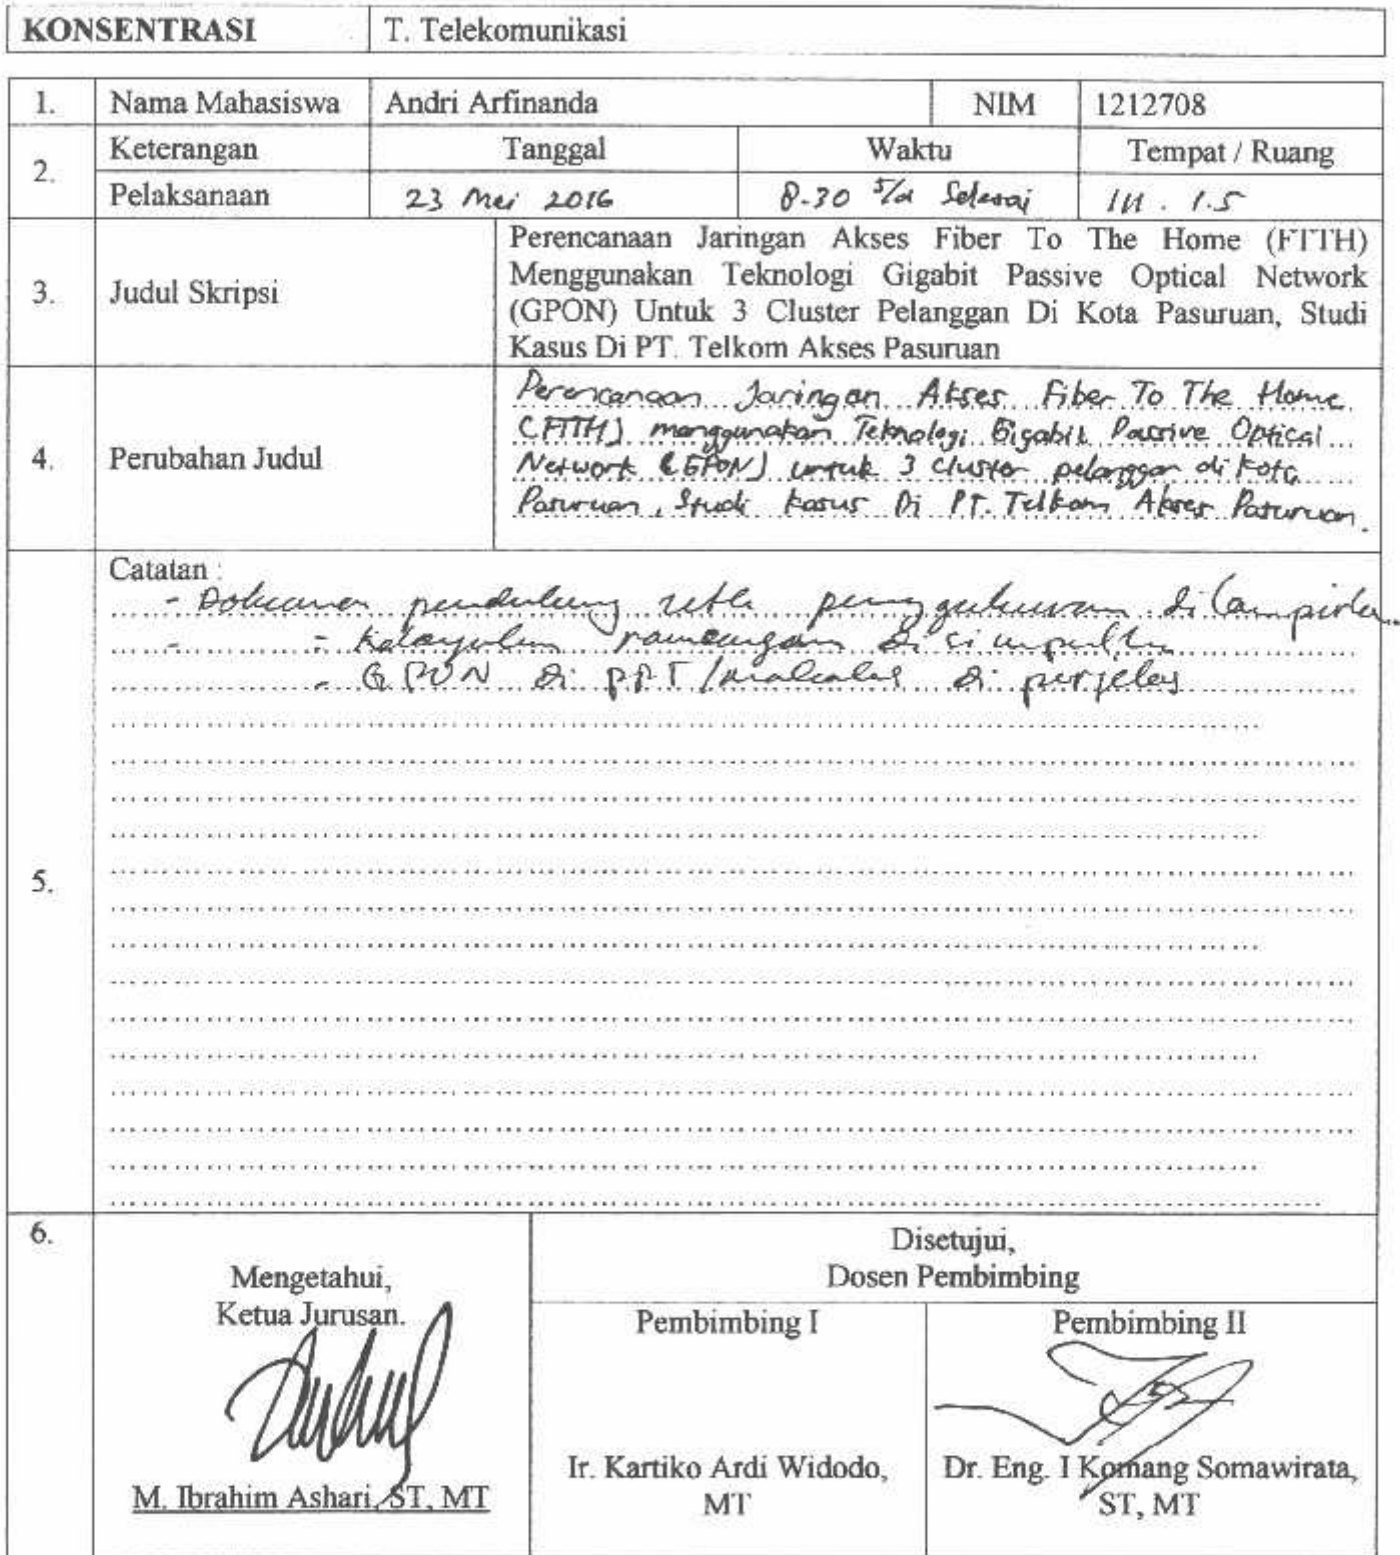 KONSENTRASI T. Telekomunikasi
1. Nama Mahasiswa Andri Arfinanda NIM 1212708
2. Keterangan Tanggal Waktu Tempat / Ruang
Pelaksanaan 23 Mei 2016 8.30 s/d Selesai III . 1.5
3. Judul Skripsi
Perencanaan Jaringan Akses Fiber To The Home (FTTH)
Menggunakan Teknologi Gigabit Passive Optical Network
(GPON) Untuk 3 Cluster Pelanggan Di Kota Pasuruan, Studi
Kasus Di PT. Telkom Akses Pasuruan
4. Perubahan Judul
Perencanaan Jaringan Akses Fiber To The Home
(FTTH) menggunakan Teknologi Gigabit Passive Optical
Network (GPON) untuk 3 cluster pelanggan di kota
Pasuruan, Studi kasus Di PT. Telkom Akses Pasuruan.
5. Catatan :
- Dokumen pendukung di lampirkan
- rancangan di simpulkan
- GPON di PPT/makalah di perjelas
6. Mengetahui,
Ketua Jurusan.
M. Ibrahim Ashari, ST, MT
Disetujui,
Dosen Pembimbing
Pembimbing I
Ir. Kartiko Ardi Widodo,
MT
Pembimbing II
Dr. Eng. I Komang Somawirata,
ST, MT